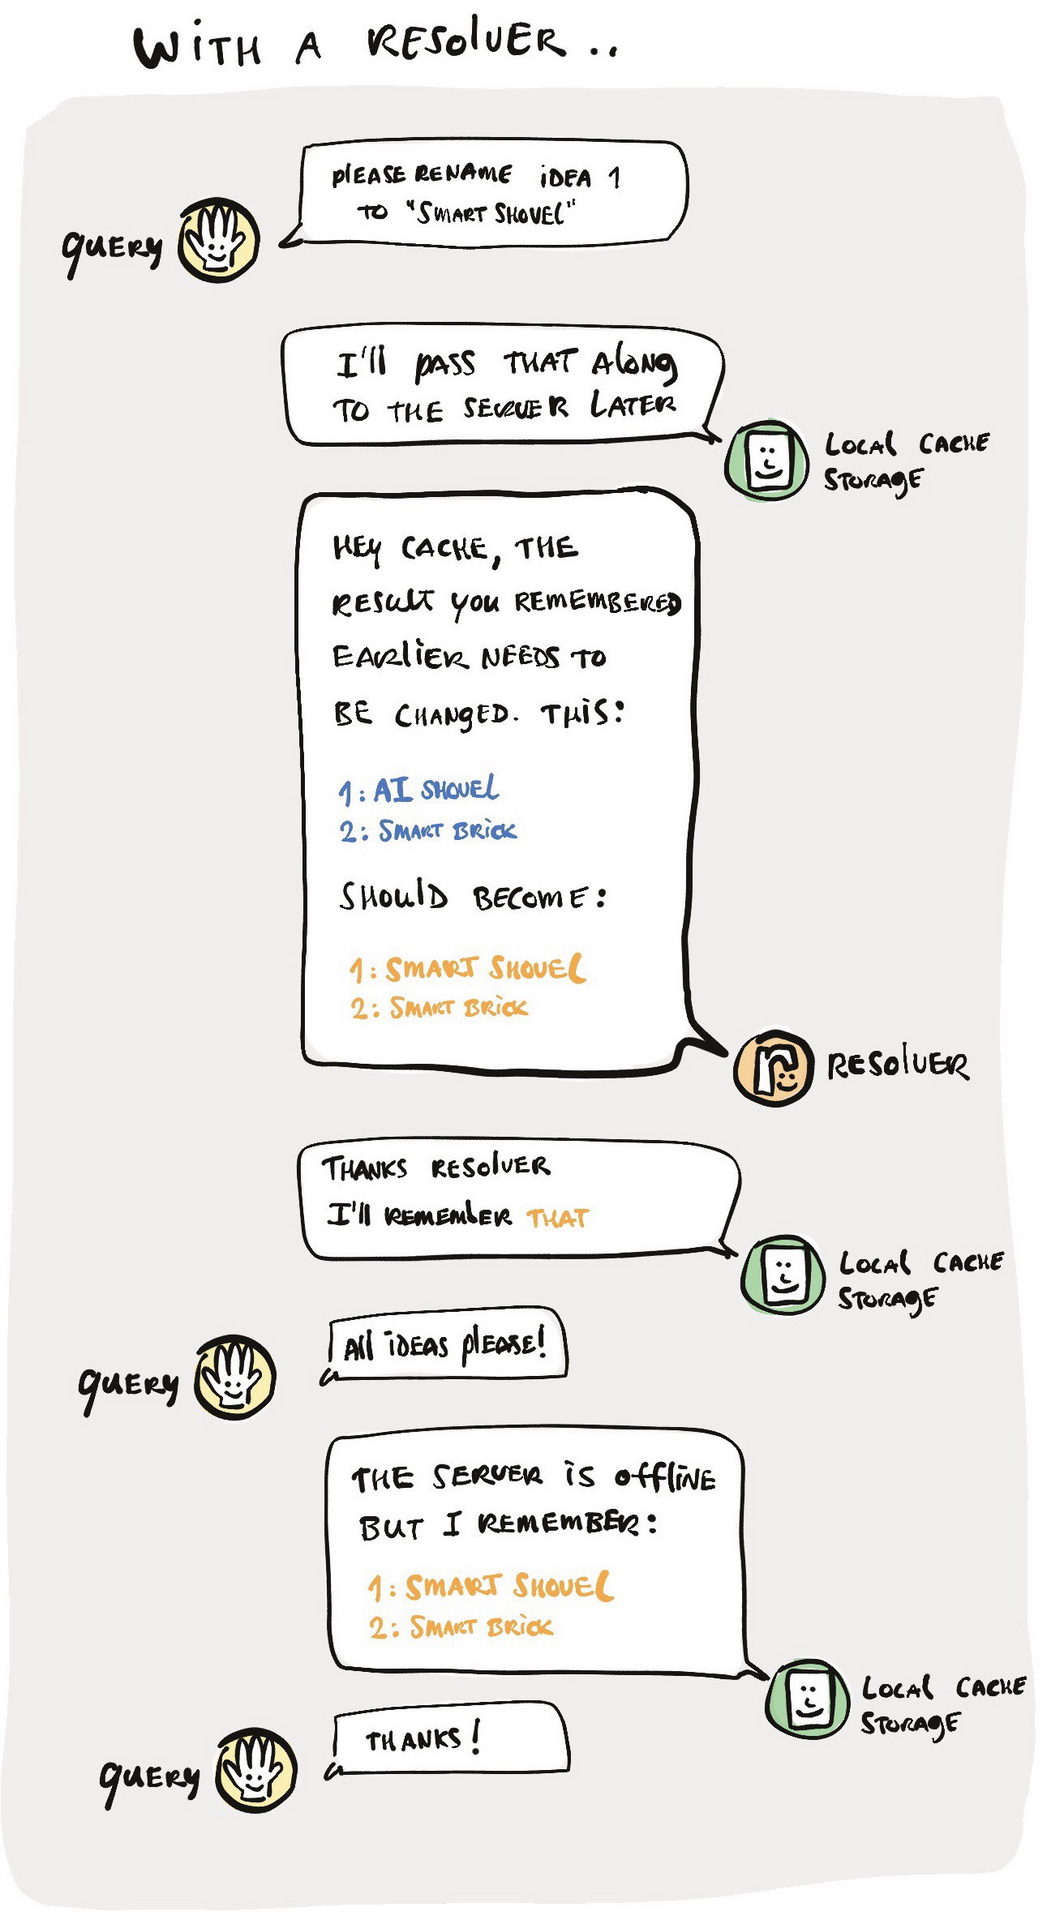 WITH A RESOLVER..
PLEASE RENAME IDEA 1
TO "SMART SHOVEL"
QUERY
I'll PASS THAT ALONG
TO THE SERVER LATER
LOCAL CACHE
STORAGE
HEY CACHE, THE
RESULT YOU REMEMBERED
EARLIER NEEDS TO
BE CHANGED. THIS:
1: AI SHOVEL
2: SMART BRICK
SHOULD BECOME:
1: SMART SHOVEL
2: SMART BRICK
r
RESOLVER
THANKS RESOLVER
I'll REMEMBER THAT
LOCAL CACHE
STORAGE
All IDEAS PLEASE!
QUERY
THE SERVER IS OFFLINE
BUT I REMEMBER:
1: SMART SHOVEL
2: SMART BRICK
LOCAL CACHE
STORAGE
THANKS!
QUERY